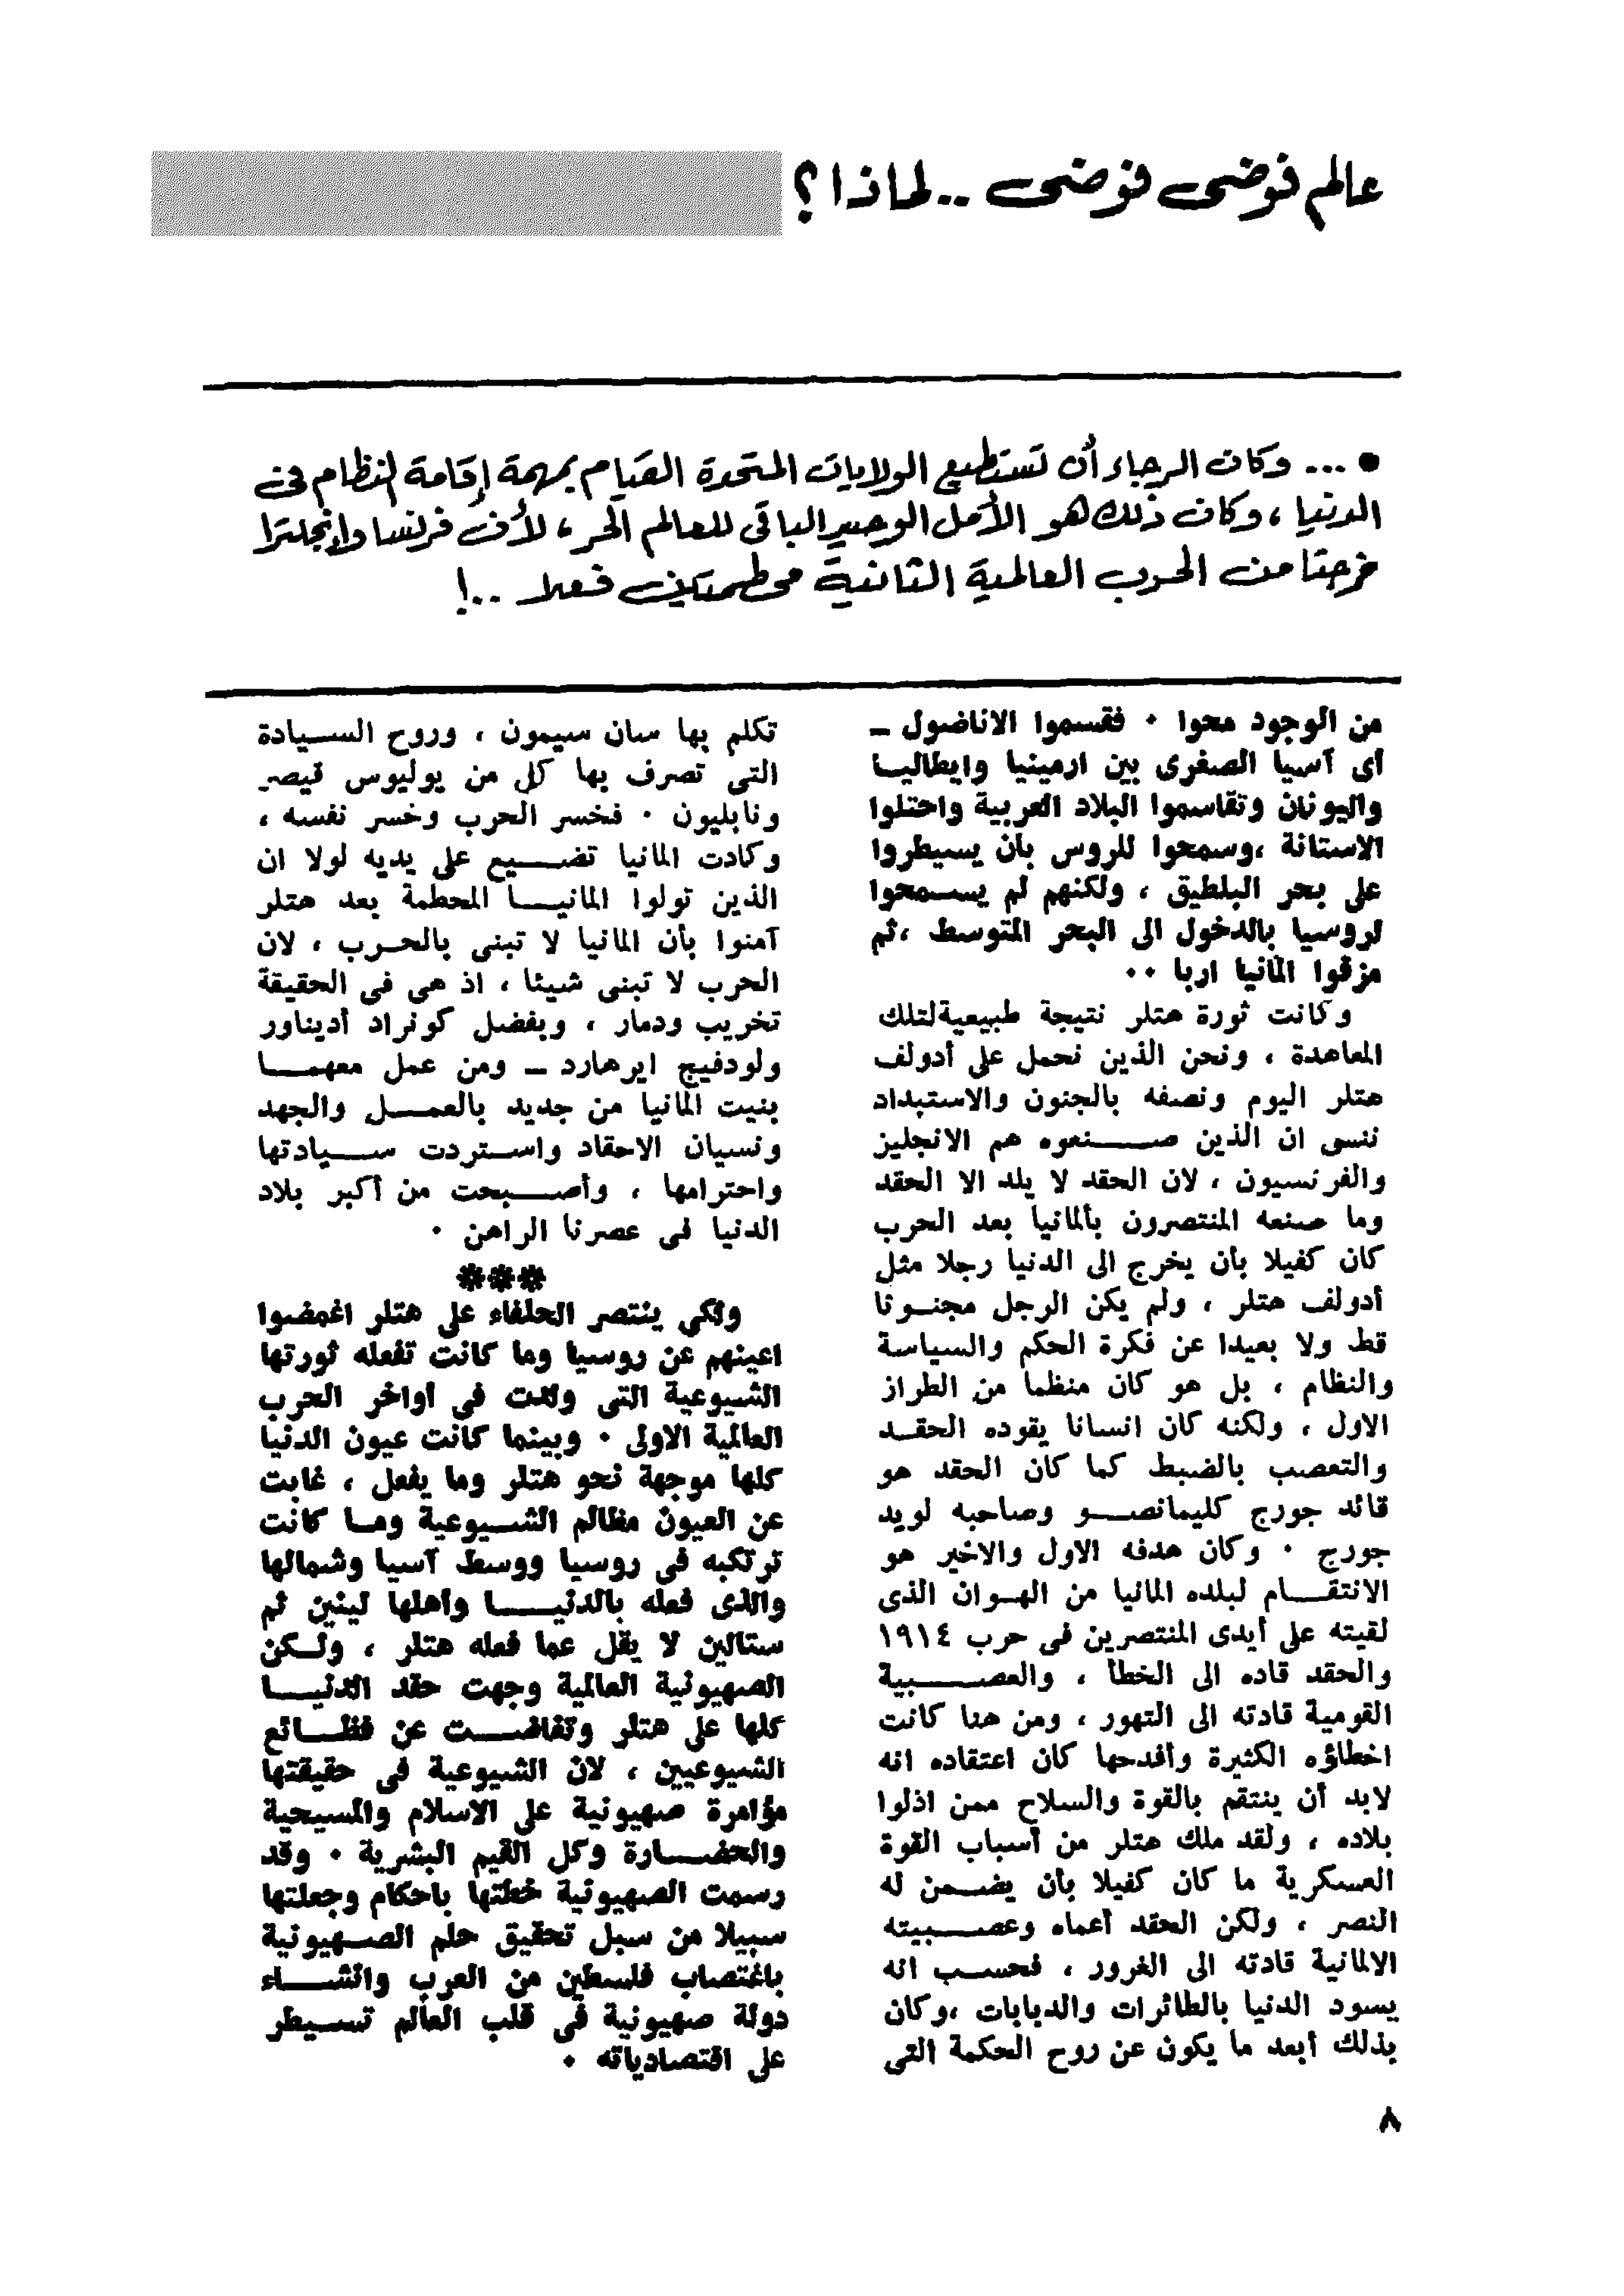 عالم فوضى فوضى .. لماذا ؟
● ... وكان الرجاء أن تستطيع الولايات المتحدة القيام بمهمة إقامة النظام فى
الدنيا ، وكان ذلك هو الأمل الوحيد الباقى للعالم الحر ، لأن فرنسا وإنجلترا
خرجتا من الحرب العالمية الثانية محطمتين فعلا ..!
من الوجود محوا ٠ فقسموا الاناضول ـ
أى آسيا الصغرى بين ارمينيا وايطاليا
واليونان وتقاسموا البلاد العربية واحتلوا
الاستانة ،وسمحوا للروس بأن يسيطروا
على بحر البلطيق ، ولكنهم لم يسمحوا
لروسيا بالدخول الى البحر المتوسط ،ثم
مزقوا المانيا اربا ٠٠
وكانت ثورة هتلر نتيجة طبيعيةلتلك
المعاهدة ، ونحن الذين نحمل على أدولف
هتلر اليوم ونصفه بالجنون والاستبداد
ننسى ان الذين صنعوه هم الانجليز
والفرنسيون ، لان الحقد لا يلد الا الحقد
وما صنعه المنتصرون بألمانيا بعد الحرب
كان كفيلا بأن يخرج الى الدنيا رجلا مثل
أدولف هتلر ، ولم يكن الرجل مجنونا
قط ولا بعيدا عن فكرة الحكم والسياسة
والنظام ، بل هو كان منظما من الطراز
الاول ، ولكنه كان انسانا يقوده الحقد
والتعصب بالضبط كما كان الحقد هو
قائد جورج كليمانصو وصاحبه لويد
جورج ٠ وكان هدفه الاول والاخير هو
الانتقام لبلده المانيا من الهوان الذى
لقيته على أيدى المنتصرين فى حرب ١٩١٤
والحقد قاده الى الخطأ ، والعصبية
القومية قادته الى التهور ، ومن هنا كانت
اخطاؤه الكثيرة وأفدحها كان اعتقاده انه
لابد أن ينتقم بالقوة والسلاح ممن اذلوا
بلاده ، ولقد ملك هتلر من أسباب القوة
العسكرية ما كان كفيلا بأن يضمن له
النصر ، ولكن الحقد أعماه وعصبيته
الالمانية قادته الى الغرور ، فحسب انه
يسود الدنيا بالطائرات والدبابات ،وكان
بذلك أبعد ما يكون عن روح الحكمة التى
تكلم بها سان سيمون ، وروح السيادة
التى تصرف بها كل من يوليوس قيصر
ونابليون ٠ فخسر الحرب وخسر نفسه ،
وكادت المانيا تضيع على يديه لولا ان
الذين تولوا المانيا المحطمة بعد هتلر
آمنوا بأن المانيا لا تبنى بالحرب ، لان
الحرب لا تبنى شيئا ، اذ هى فى الحقيقة
تخريب ودمار ، وبفضل كونراد أديناور
ولودفيج ايرهارد ـ ومن عمل معهما
بنيت المانيا من جديد بالعمل والجهد
ونسيان الاحقاد واستردت سيادتها
واحترامها ، وأصبحت من أكبر بلاد
الدنيا فى عصرنا الراهن ٠
***
ولكى ينتصر الحلفاء على هتلر اغمضوا
اعينهم عن روسيا وما كانت تفعله ثورتها
الشيوعية التى ولدت فى أواخر الحرب
العالمية الاولى ٠ وبينما كانت عيون الدنيا
كلها موجهة نحو هتلر وما يفعل ، غابت
عن العيون مظالم الشيوعية وما كانت
ترتكبه فى روسيا ووسط آسيا وشمالها
والذى فعله بالدنيا وأهلها لينين ثم
ستالين لا يقل عما فعله هتلر ، ولكن
الصهيونية العالمية وجهت حقد الدنيا
كلها على هتلر وتغاضت عن فظائع
الشيوعيين ، لان الشيوعية فى حقيقتها
مؤامرة صهيونية على الاسلام والمسيحية
والحضارة وكل القيم البشرية ٠ وقد
رسمت الصهيونية خطتها باحكام وجعلتها
سبيلا من سبل تحقيق حلم الصهيونية
باغتصاب فلسطين من العرب وانشاء
دولة صهيونية فى قلب العالم تسيطر
على اقتصادياته ٠
٨